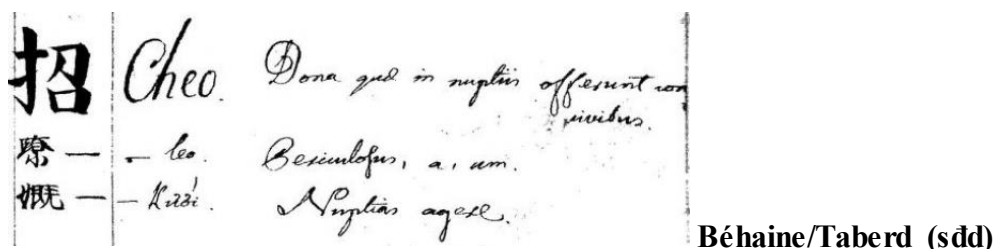 招 Cheo. Dona quæ in nuptiis offerunt con
vivibus.
嘹 — – leo. Periculosus, a, um.
— – Nuptias agere.
Béhaine/Taberd (sđd)